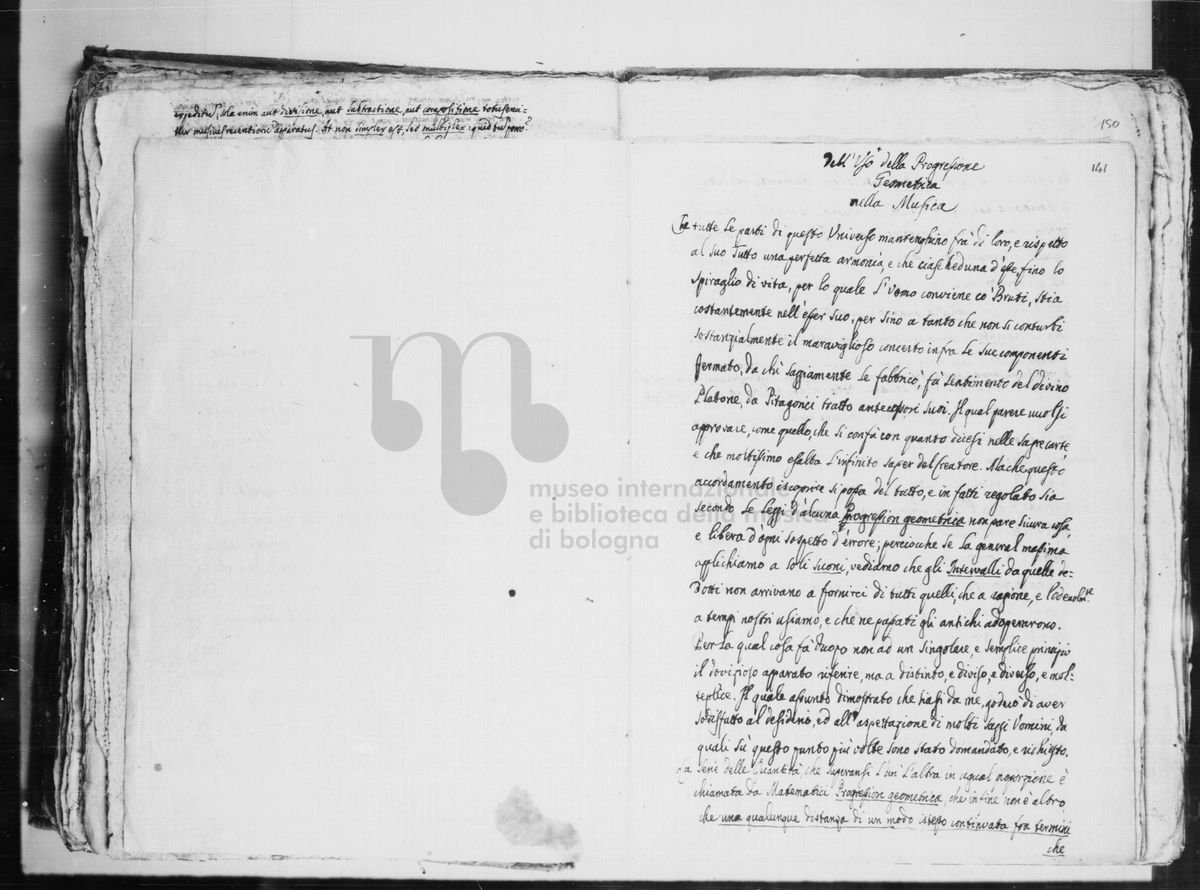 expeditus, sola enim aut divisione, aut subtractione, aut compositione totus eni-
tur musices recentioris apparatus. At non simplex est, sed multiplex: quid tu porro?
150
141
Dell'Uso della Progressione
Geometrica
nella Musica
Che tutte le parti di questo Universo mantenghino frà di loro, e rispetto
al suo Tutto una perfetta armonia, e che ciascheduna d'esse, fino lo
spiraglio di vita, per lo quale l'Uomo conviene co' Bruti, stia
costantemente nell'esser suo, per sino a tanto che non si conturbi
sostanzialmente il maraviglioso concerto infra le sue componenti
fermato, da chi saggiamente le fabbricò, fà sentimento del divino
Platone, da Pitagorici tratto antecessori suoi. Il qual parere vuolsi
approvare, come quello, che si confà con quanto dicesi nelle sagre carte
e che moltissimo esalta l'infinito saper del Creatore. Ma che questo
accordamento iscoprire si possa del tutto, e in fatti regolato sia
secondo le leggi d'alcuna Progression geometrica non pare sicura cosa,
e libera d'ogni sospetto d'errore; perciocche se la general massima
applichiamo a soli Suoni, vediamo che gli Intervalli da quelle de-
dotti non arrivano a fornirci di tutti quelli, che a ragione, e
a tempi nostri usiamo, e che ne passati gli antichi adoperarono.
Per la qual cosa fà duopo non ad un singolare, e semplice principio
il dovizioso apparato riferire, ma a distinto, e diviso, e diverso, e mol-
teplice. Il quale assunto dimostrato che siasi da me, godrò di aver
sodisfatto al desiderio, ed all'aspettazione di molti saggi Uomini, da
quali sù questo punto più volte sono stato domandato, e richiesto.
La serie delle Quantità, che superansi l'un l'altra in ugual proporzione è
chiamata da Matematici Progression geometrica, che in fine non è altro,
che una qualunque distanza di un modo istesso continuata fra termini
che
museo internazionale
e biblioteca della musica
di bologna